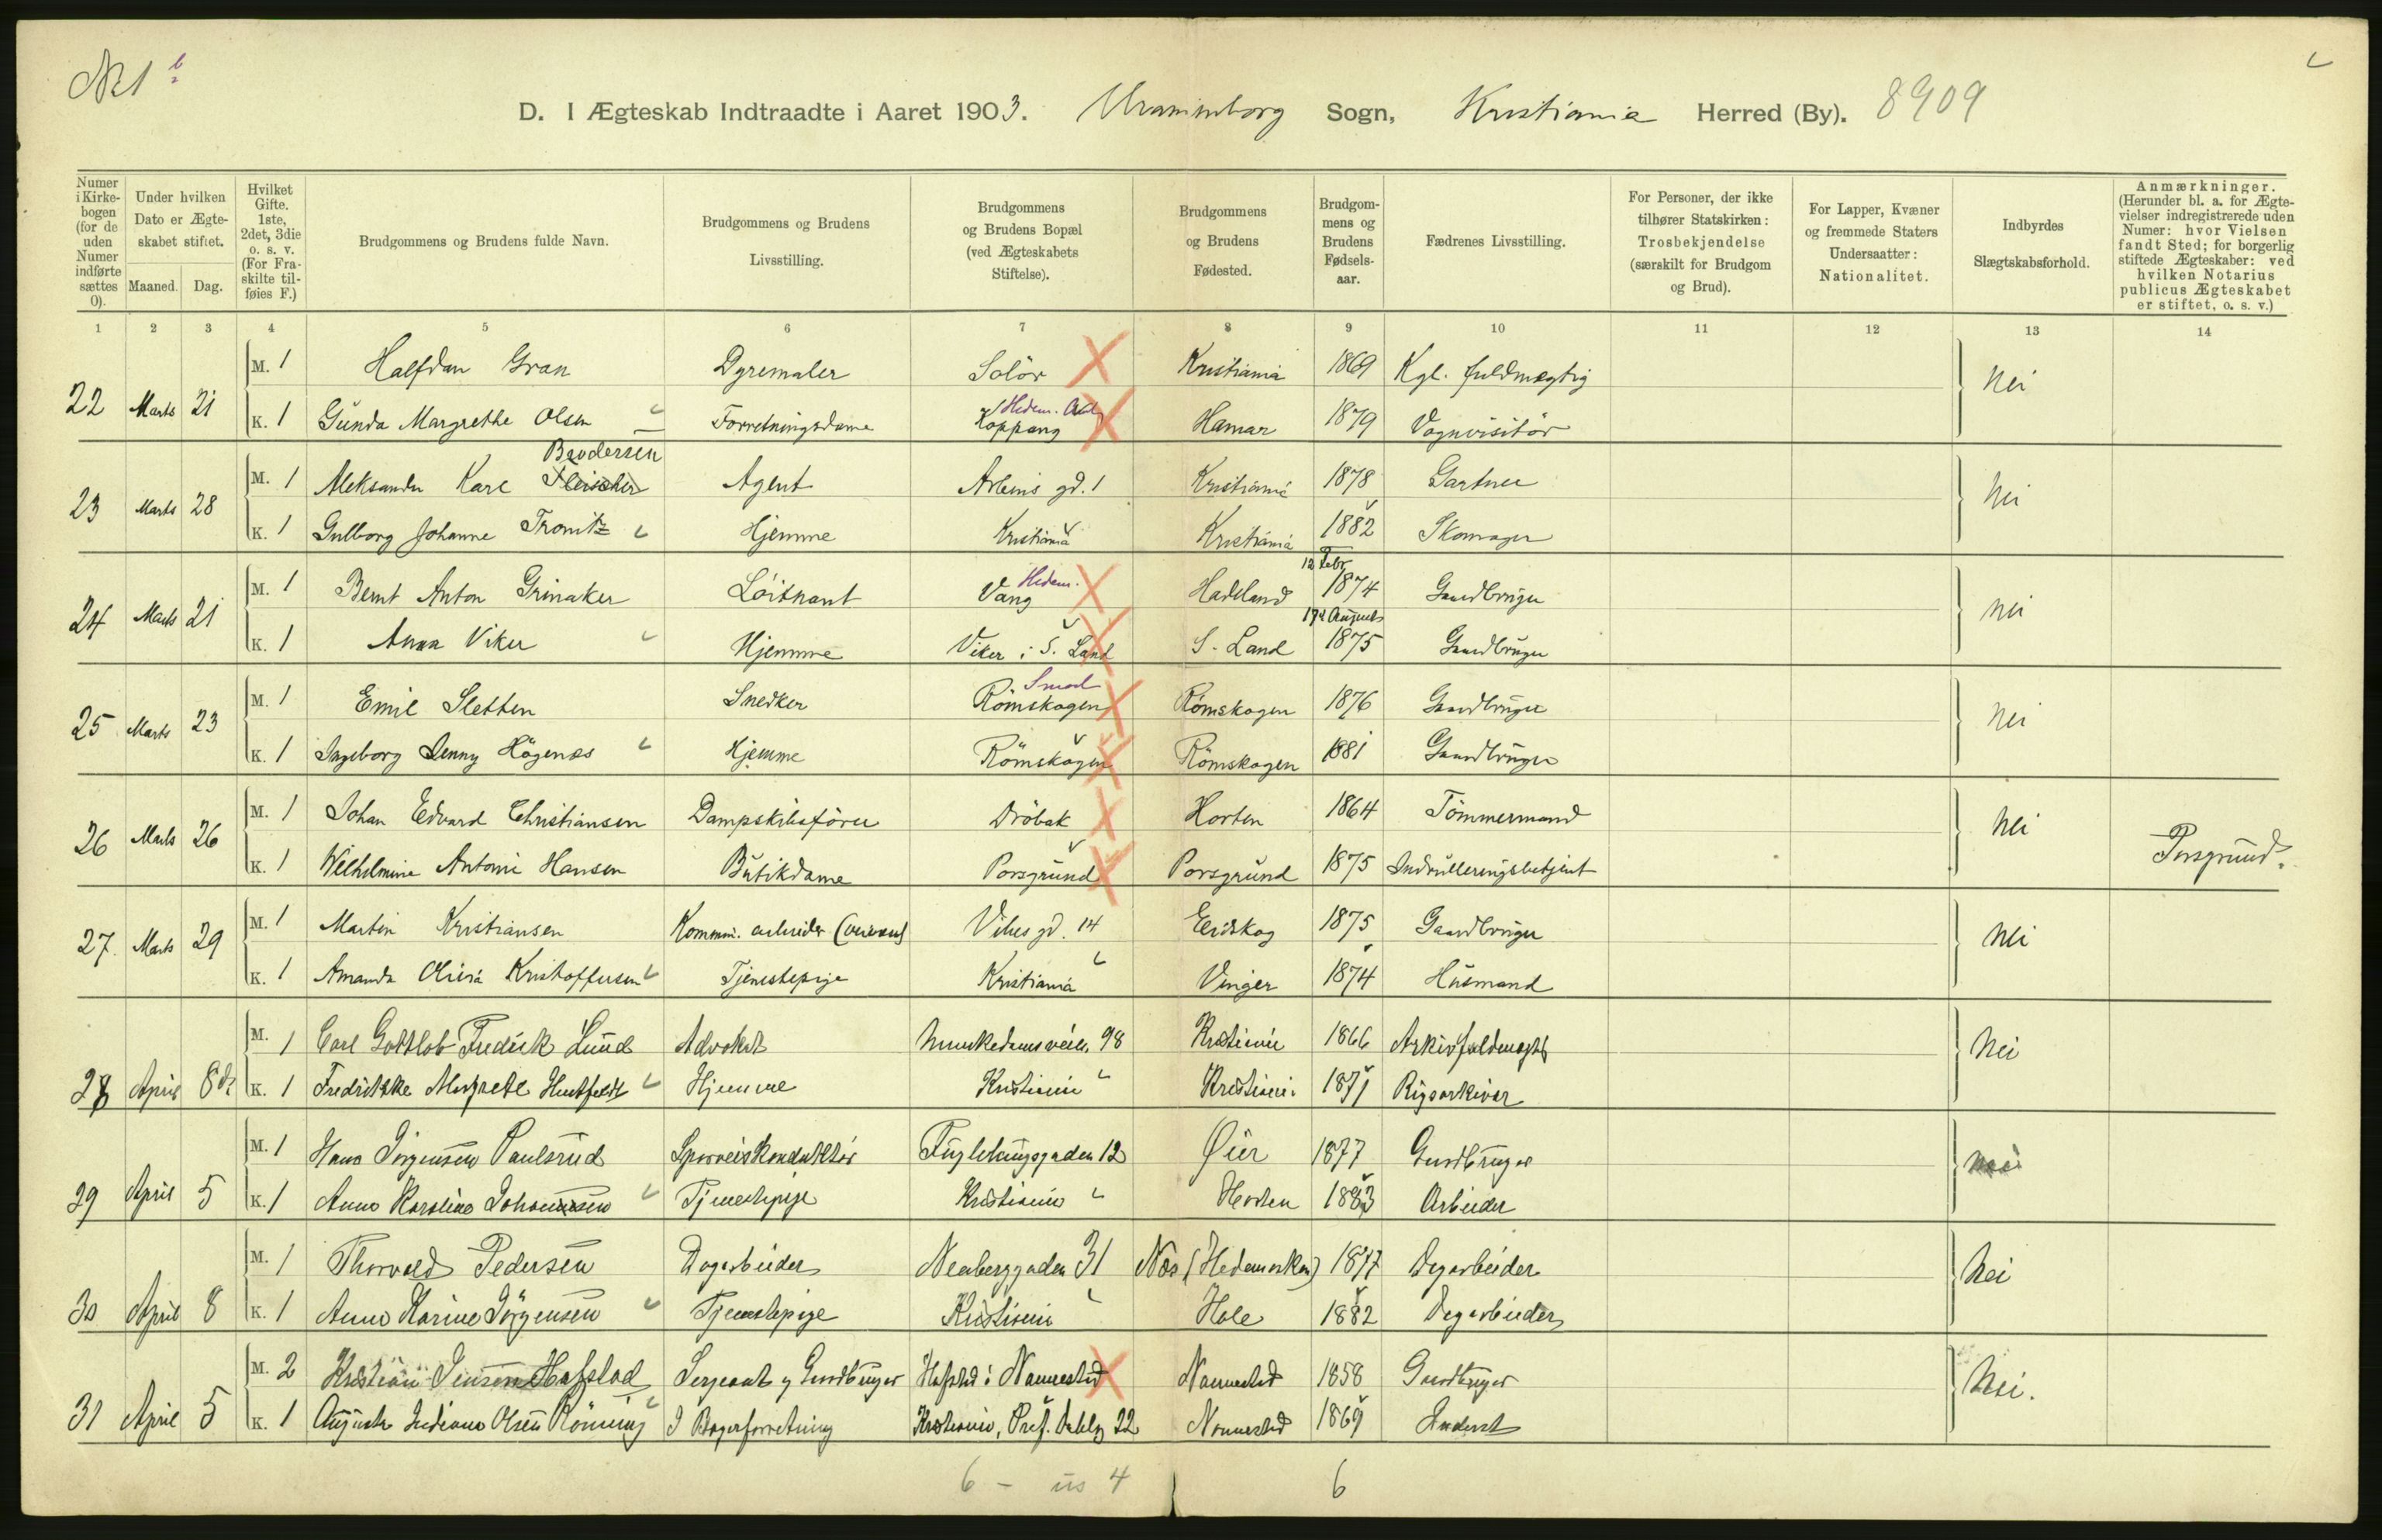 Nr 1 b
D. I Ægteskab Indtraadte i Aaret 1903. Uranienborg Sogn, Kristiania Herred (By). 8909
Numer i Kirkebogen (for de uden Numer indførte sættes 0).
Under hvilken Dato er Ægteskabet stiftet.
Maaned. Dag.
Hvilket Gifte. 1ste, 2det, 3die o. s. v. (For Fraskilte tilføies F.)
Brudgommens og Brudens fulde Navn.
Brudgommens og Brudens Livsstilling.
Brudgommens og Brudens Bopæl (ved Ægteskabets Stiftelse).
Brudgommens og Brudens Fødested.
Brudgommens og Brudens Fødselsaar.
Fædrenes Livsstilling.
For Personer, der ikke tilhører Statskirken: Trosbekjendelse (særskilt for Brudgom og Brud).
For Lapper, Kvæner og fremmede Staters Undersaatter: Nationalitet.
Indbyrdes Slægtskabsforhold.
Anmærkninger. (Herunder bl. a. for Ægtevielser indregistrerede uden Numer: hvor Vielsen fandt Sted; for borgerlig stiftede Ægteskaber: ved hvilken Notarius publicus Ægteskabet er stiftet, o. s. v.)
1 2 3 4 5 6 7 8 9 10 11 12 13 14
M. 1 Halfdan Gran Dyremaler Solör Kristiania 1869 Kgl. fuldmægtig
22 Marts 21 nei
Hedem.
K. 1 Gunda Margrethe Olsen Forretningsdame Koppang Hamar 1879 Vognvisitör
Brodersen
M. 1 Aleksander Karl Fleischer Agent Arbins gd. 1 Kristiania 1878 Gartner
23 Marts 28 nei
K. 1 Gulborg Johanne Tronitz Hjemme Kristiania Kristiania 1882 Skomager
Hedem. 12 Febr
M. 1 Bernt Anton Grinaker Löitnant Vang Hadeland 1874 Gaardbruger
24 Marts 21 nei
17d August
K. 1 Anna Viker Hjemme Viker i S. Land S. Land 1875 Gaardbruger
Smaal
M. 1 Emil Sletten Snedker Römskogen Römskogen 1876 Gaardbruger
25 Marts 23 nei
K. 1 Ingeborg Jenny Högenæs Hjemme Römskogen Römskogen 1881 Gaardbruger
M. 1 Johan Edvard Christiansen Dampskibsförer Dröbak Horten 1864 Tömmermand
26 Marts 26 nei Porsgrund.
K. 1 Wilhelmine Antonie Hansen Butikdame Porsgrund Porsgrund 1875 Indrulleringsbetjent
M. 1 Martin Kristiansen Komm. arbeider Vibes gd. 14 Eidskog 1875 Gaardbruger
27. Marts 29 nei
K. 1 Amanda Olivia Kristoffersen Tjenestepige Kristiania Vinger 1874 Husmand
M. 1 Carl Gottlob Fredrik Lund Advokat Munkedamsveien 98 Kristiania 1866 Arkivfuldmægtig
28 April 8de nei
K. 1 Fredrikke Margrete Huitfeldt Hjemme Kristiania Kristiania 1871 Rigsarkivar
M. 1 Hans Jörgensen Paulsrud Sporveiskonduktör Fuglehaugsgaden 12 Øier 1877 Gaardbruger
29 April 5 nei
K. 1 Anna Karoline Johannesen Tjenestepige Kristiania Horten 1883 Arbeider
M. 1 Thorvald Pedersen Dagarbeider Neuberggaden 31 Næs (Hedemarken) 1877 Dagarbeider
30 April 8 nei
K. 1 Anna Karine Jörgensen Tjenestepige Kristiania Hole 1882 Dagarbeider
M. 2 Kristian Jensen Hafstad Sergeant og Gaardbruger Hafstad i Nannestad Nannestad 1858 Gaardbruger
31 April 5 nei.
K. 1 Augusta Indiana Olsen Rönning I Bagerforretning Kristiania, Prof. Dahlsg 22 Nannestad 1869
6 - us 4 6